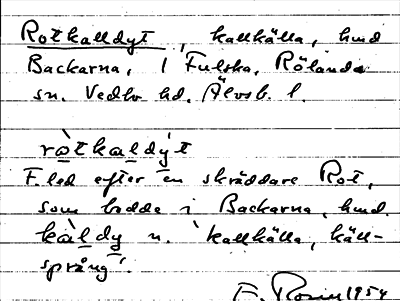 Rotkalldyt, kallkälla, hmd
Backarna, i Fulska, Rölanda
sn. Vedbo hd. Älvsb. l.
ròtkaldýt
F. led efter en skräddare Rot,
som bodde i Backarna, hmd.
kàldy n. 'kallkälla, käll-
språng'.
1954